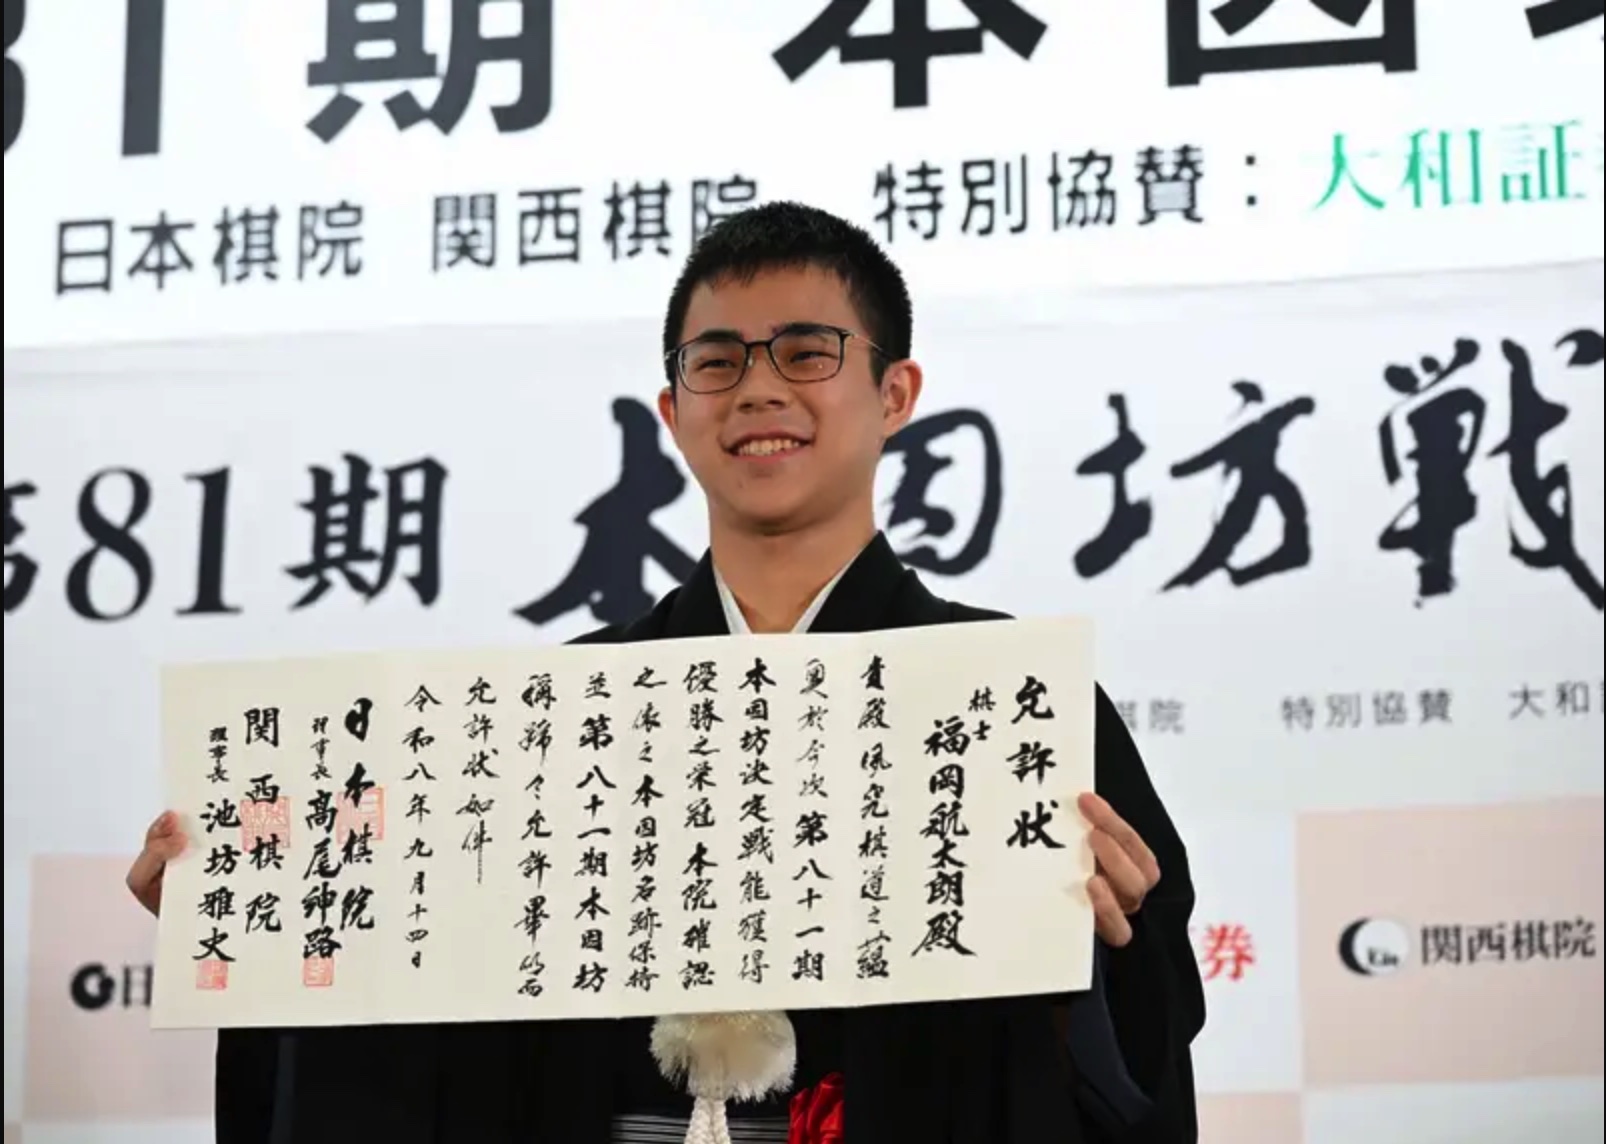 31期 本因
日本棋院 関西棋院 特別協賛：大和証
第81期 本因坊戦
棋院 特別協賛 大和
允許状
棋士
福岡航太朗殿
貴殿夙究棋道之蘊
奥於今次第八十一期
本因坊決定戦能獲得
優勝之栄冠本院確認
之依之本因坊名跡保持
並第八十一期本因坊
称号々允許畢仍而
允許状如件
令和八年九月十四日
日本棋院
理事長 高尾紳路
関西棋院
理事長 池坊雅史
日
券
関西棋院